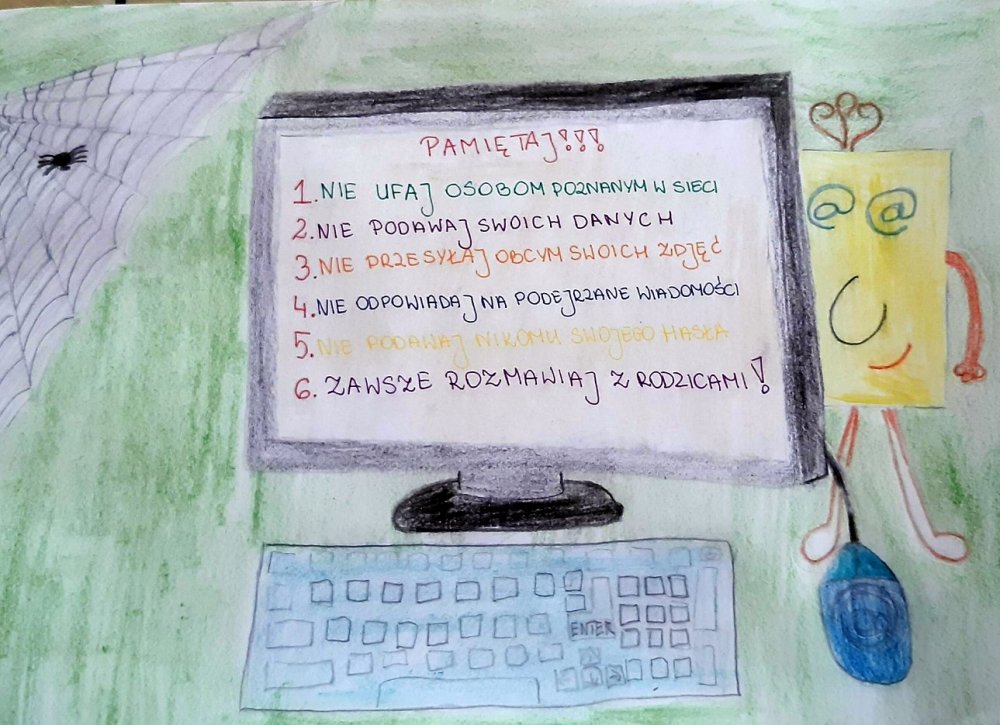 PAMIĘTAJ!!!
1. NIE UFAJ OSOBOM POZNANYM W SIECI
2. NIE PODAWAJ SWOICH DANYCH
3. NIE PRZESYŁAJ OBCYM SWOICH ZDJĘĆ
4. NIE ODPOWIADAJ NA PODEJRZANE WIADOMOŚCI
5. NIE PODAWAJ NIKOMU SWOJEGO HASŁA
6. ZAWSZE ROZMAWIAJ Z RODZICAMI!
@ @
ENTER